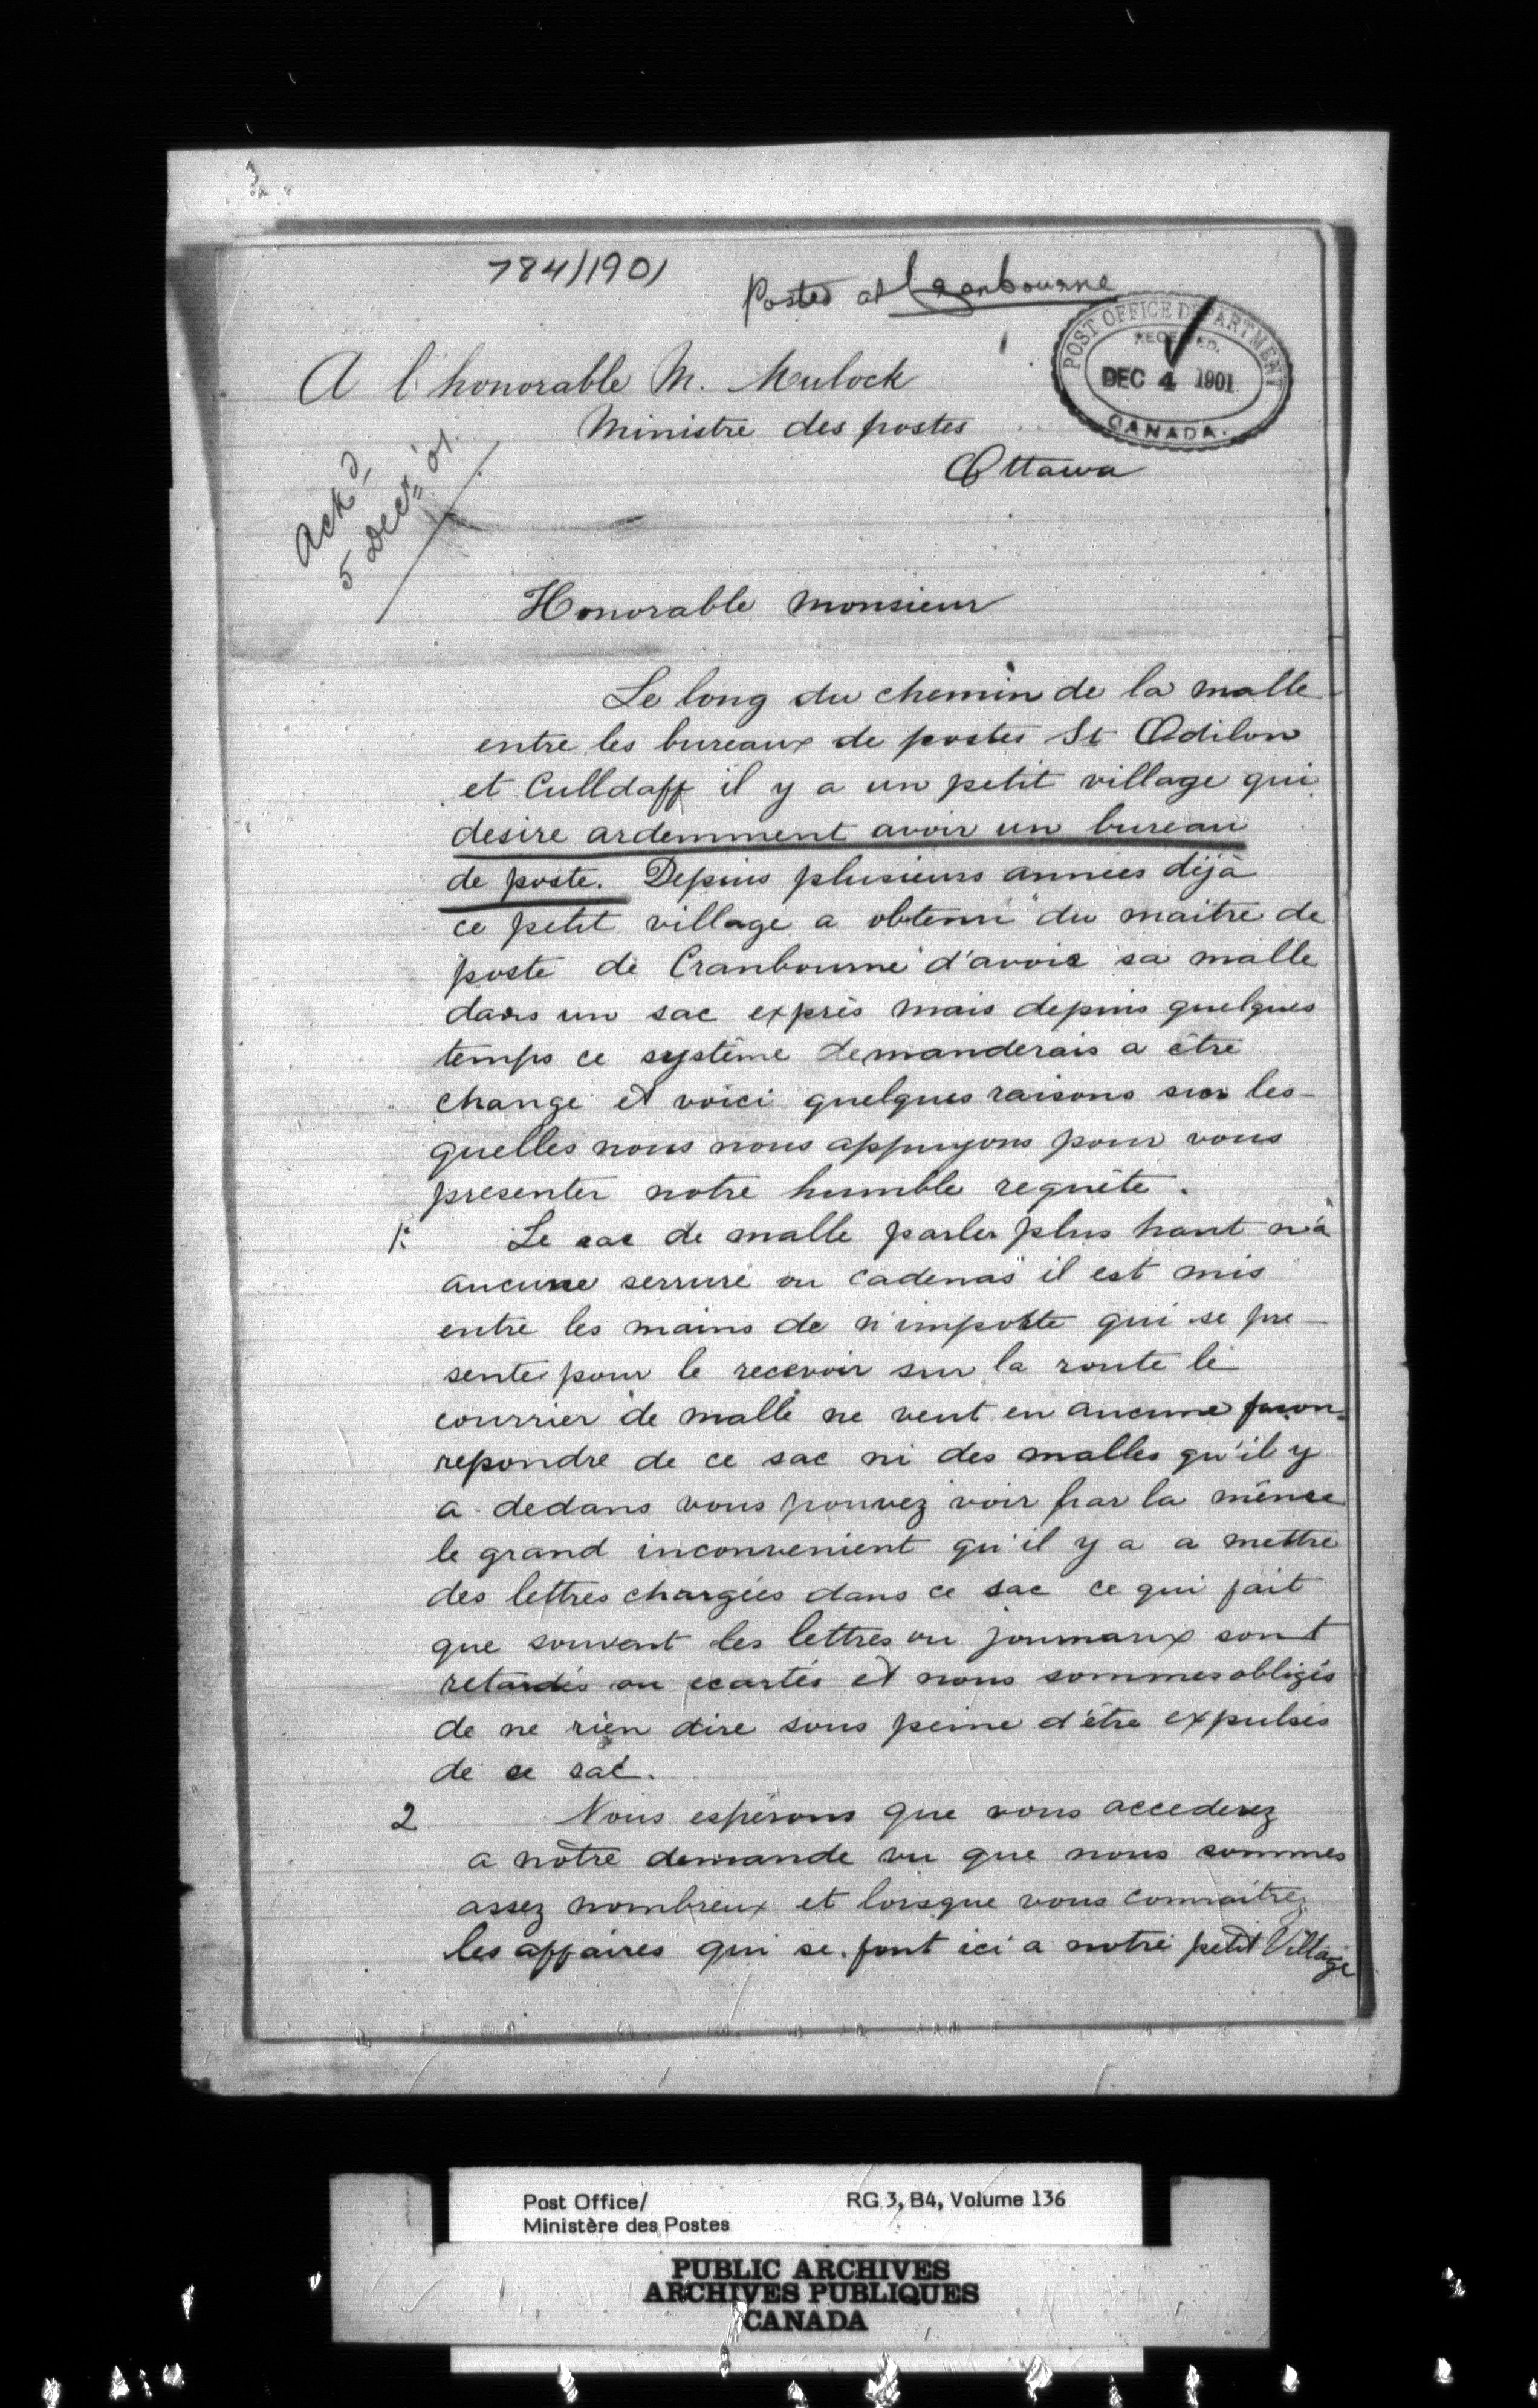 784/1901
Posted at Cranbourne
POST OFFICE DEPARTMENT
RECEIVED.
DEC 4 1901
CANADA.
A l'honorable M. Mulock
Ministre des postes
Ottawa
Ackd
5 Decr 01
Honorable Monsieur
Le long du chemin de la malle
entre les bureaux de postes St Odilon
et Culldaff il y a un petit village qui
desire ardemment avoir un bureau
de poste. Depuis plusieurs années déjà
ce petit village a obtenu du maitre de
poste de Cranbourne d'avoir sa malle
dans un sac exprès mais depuis quelques
temps ce système demanderais a être
changé et voici quelques raisons sur les-
quelles nous nous appuyons pour vous
presenter notre humble requête.
1: Le sac de malle parler plus haut n'a
aucune serrure ou cadenas il est mis
entre les mains de n'importe qui se pre-
sente pour le recevoir sur la route le
courrier de malle ne veut en aucune facon
repondre de ce sac ni des malles qu'il y
a dedans vous pouvez voir par la même
le grand inconvenient qu'il y a a mettre
des lettres chargées dans ce sac ce qui fait
que souvent les lettres ou journaux sont
retardés ou ecartés et nous sommes obligés
de ne rien dire sous peine d'être expulsés
de ce sac.
2 Nous espérons que vous accederez
a nôtre demande vu que nous sommes
assez nombreux et lorsque vous connaitrez
les affaires qui se font ici a notre petit Village
Post Office/
Ministère des Postes
RG 3, B4, Volume 136
PUBLIC ARCHIVES
ARCHIVES PUBLIQUES
CANADA